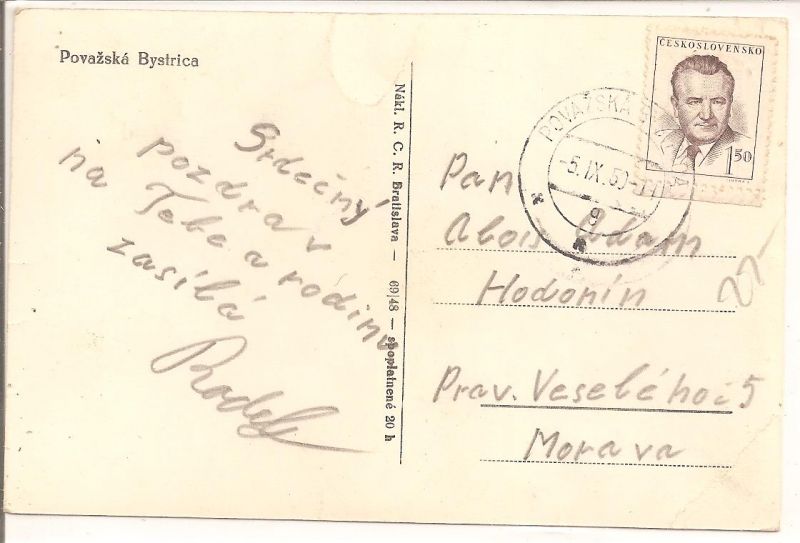 Považská Bystrica
Srdečný
pozdrav
na Tebe a rodinu
zasílá
Nákl. R. C. R. Bratislava — 69/48 — spoplatnené 20 h
ČESKOSLOVENSKO
1 50
POVAŽSKÁ
-5.IX.50
9
Pan
Alois Adam
Hodonín
Prav. Veselého č 5
Morava